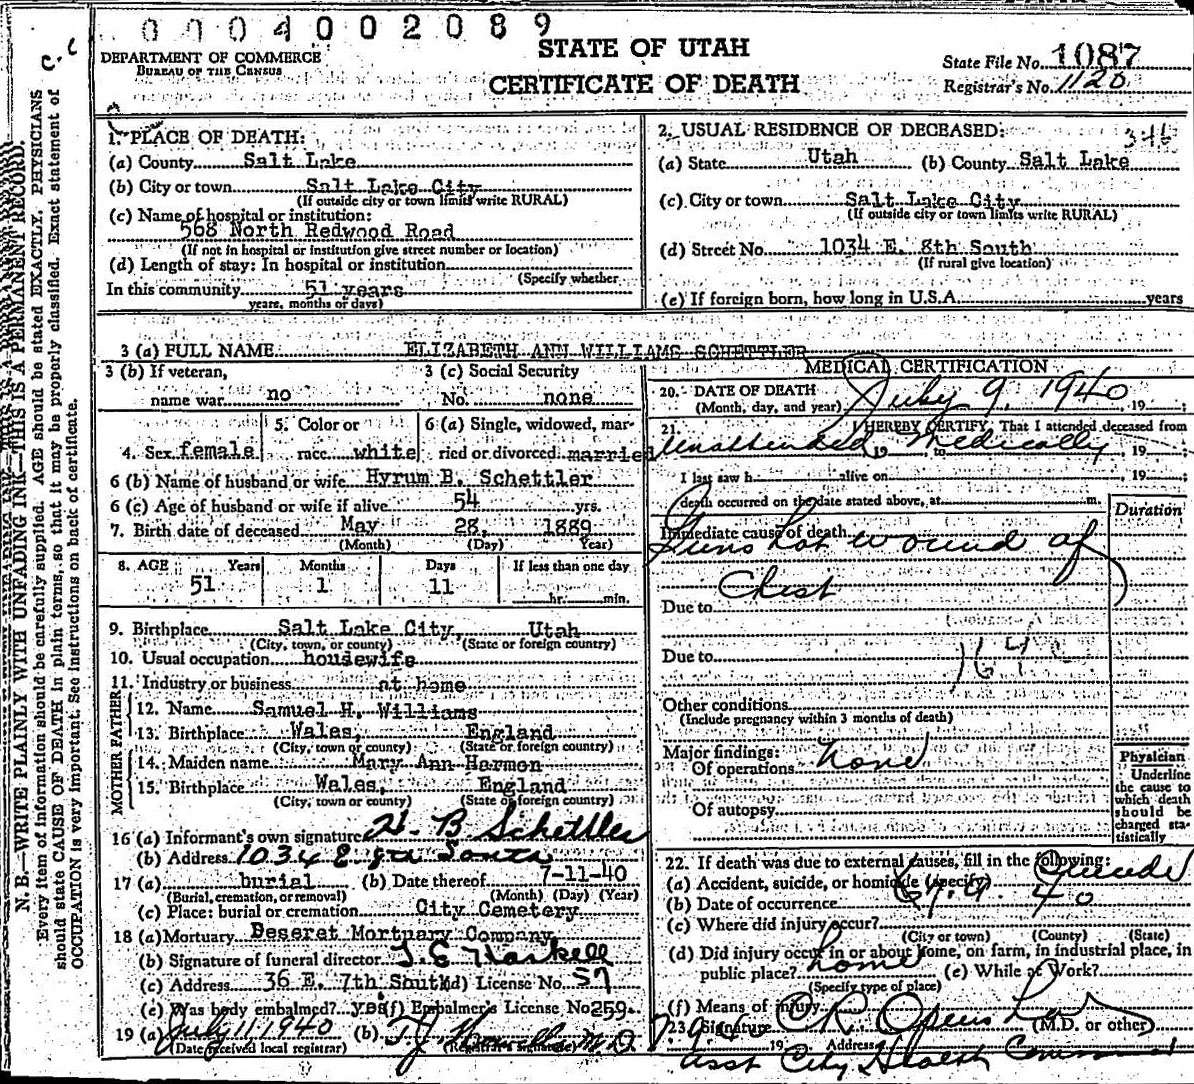 0004002089
C.C
DEPARTMENT OF COMMERCE
BUREAU OF THE CENSUS
STATE OF UTAH
CERTIFICATE OF DEATH
State File No. 1087
Registrar's No. 1120
N. B.—WRITE PLAINLY WITH UNFADING INK—THIS IS A PERMANENT RECORD.
Every item of information should be carefully supplied. AGE should be stated EXACTLY. PHYSICIANS
should state CAUSE OF DEATH in plain terms, so that it may be properly classified. Exact statement of
OCCUPATION is very important. See instructions on back of certificate.
1. PLACE OF DEATH:
(a) County Salt Lake
(b) City or town Salt Lake City
(If outside city or town limits write RURAL)
(c) Name of hospital or institution:
568 North Redwood Road
(If not in hospital or institution give street number or location)
(d) Length of stay: In hospital or institution
(Specify whether
In this community 51 years
years, months or days)
2. USUAL RESIDENCE OF DECEASED:
346
(a) State Utah (b) County Salt Lake
(c) City or town Salt Lake City
(If outside city or town limits write RURAL)
(d) Street No. 1034 E. 8th South
(If rural give location)
(e) If foreign born, how long in U.S.A. years
3 (a) FULL NAME ELIZABETH ANN WILLIAMS SCHETTLER
3 (b) If veteran,
name war no
3 (c) Social Security
No. none
4. Sex female
5. Color or
race white
6 (a) Single, widowed, mar-
ried or divorced married
6 (b) Name of husband or wife Hyrum B. Schettler
6 (c) Age of husband or wife if alive 54 yrs.
7. Birth date of deceased May 28, 1889
(Month) (Day) Year)
8. AGE Years Months Days If less than one day
51 1 11 hr. min.
9. Birthplace Salt Lake City, Utah
(City, town, or county) (State or foreign country)
10. Usual occupation housewife
11. Industry or business at home
FATHER
12. Name Samuel H. Williams
13. Birthplace Wales, England
(City, town or county) (State or foreign country)
MOTHER
14. Maiden name Mary Ann Harmon
15. Birthplace Wales, England
(City, town or county) (State or foreign country)
16 (a) Informant's own signature H. B Schettler
(b) Address 1034 E 8th South
17 (a) burial (b) Date thereof 7-11-40
(Burial, cremation, or removal) (Month) (Day) (Year)
(c) Place: burial or cremation City Cemetery
18 (a) Mortuary Deseret Mortuary Company
(b) Signature of funeral director
(c) Address 36 E. 7th South (d) License No. 57
(e) Was body embalmed? yes (f) Embalmer's License No 259
19 (a) July 11, 1940 (b) M.D.
(Date received local registrar) (Registrar's signature)
MEDICAL CERTIFICATION
20. DATE OF DEATH July 9, 1940
(Month, day, and year) , 19 ;
21. I HEREBY CERTIFY, That I attended deceased from
Unattended 19 to Medically , 19 ;
I last saw h alive on , 19 ;
death occurred on the date stated above, at m.
Duration
Immediate cause of death
Gunshot wound of
Chest
Due to
Due to
Other conditions
(Include pregnancy within 3 months of death)
Major findings:
Of operations none
Of autopsy
Physician
Underline
the cause to
which death
should be
charged sta-
tistically
22. If death was due to external causes, fill in the following:
(a) Accident, suicide, or homicide (specify) Suicide
(b) Date of occurrence 40
(c) Where did injury occur?
(City or town) (County) (State)
(d) Did injury occur in or about home, on farm, in industrial place, in
public place? home (e) While at Work?
(Specify type of place)
(f) Means of injury
23. Signature (M.D. or other)
19 Address
asst City Health